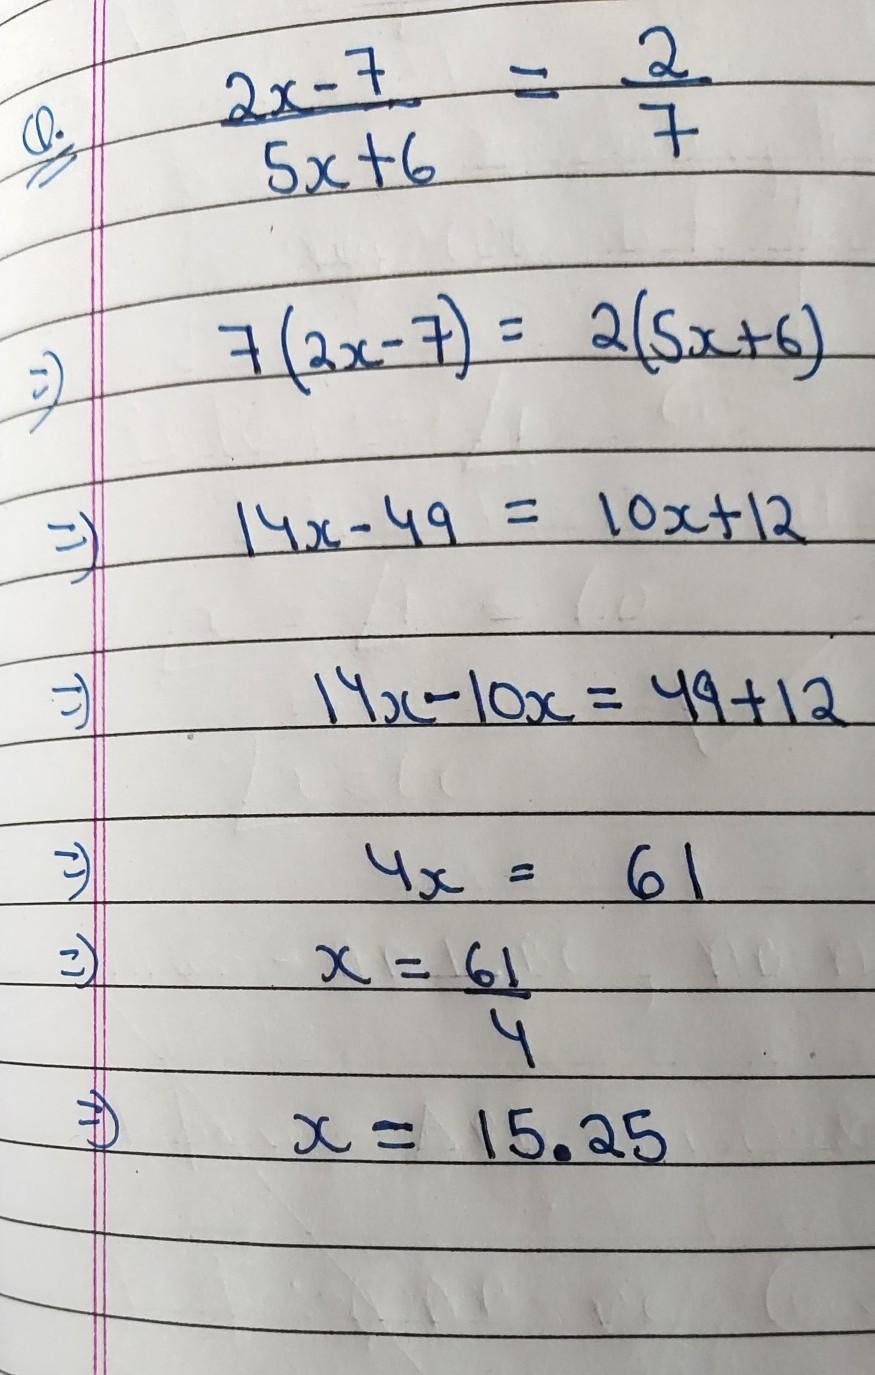 Q. (2x-7)/(5x+6) = 2/7
=) 7(2x-7) = 2(5x+6)
=) 14x-49 = 10x+12
=) 14x-10x = 49+12
=) 4x = 61
=) x = 61/4
=) x = 15.25